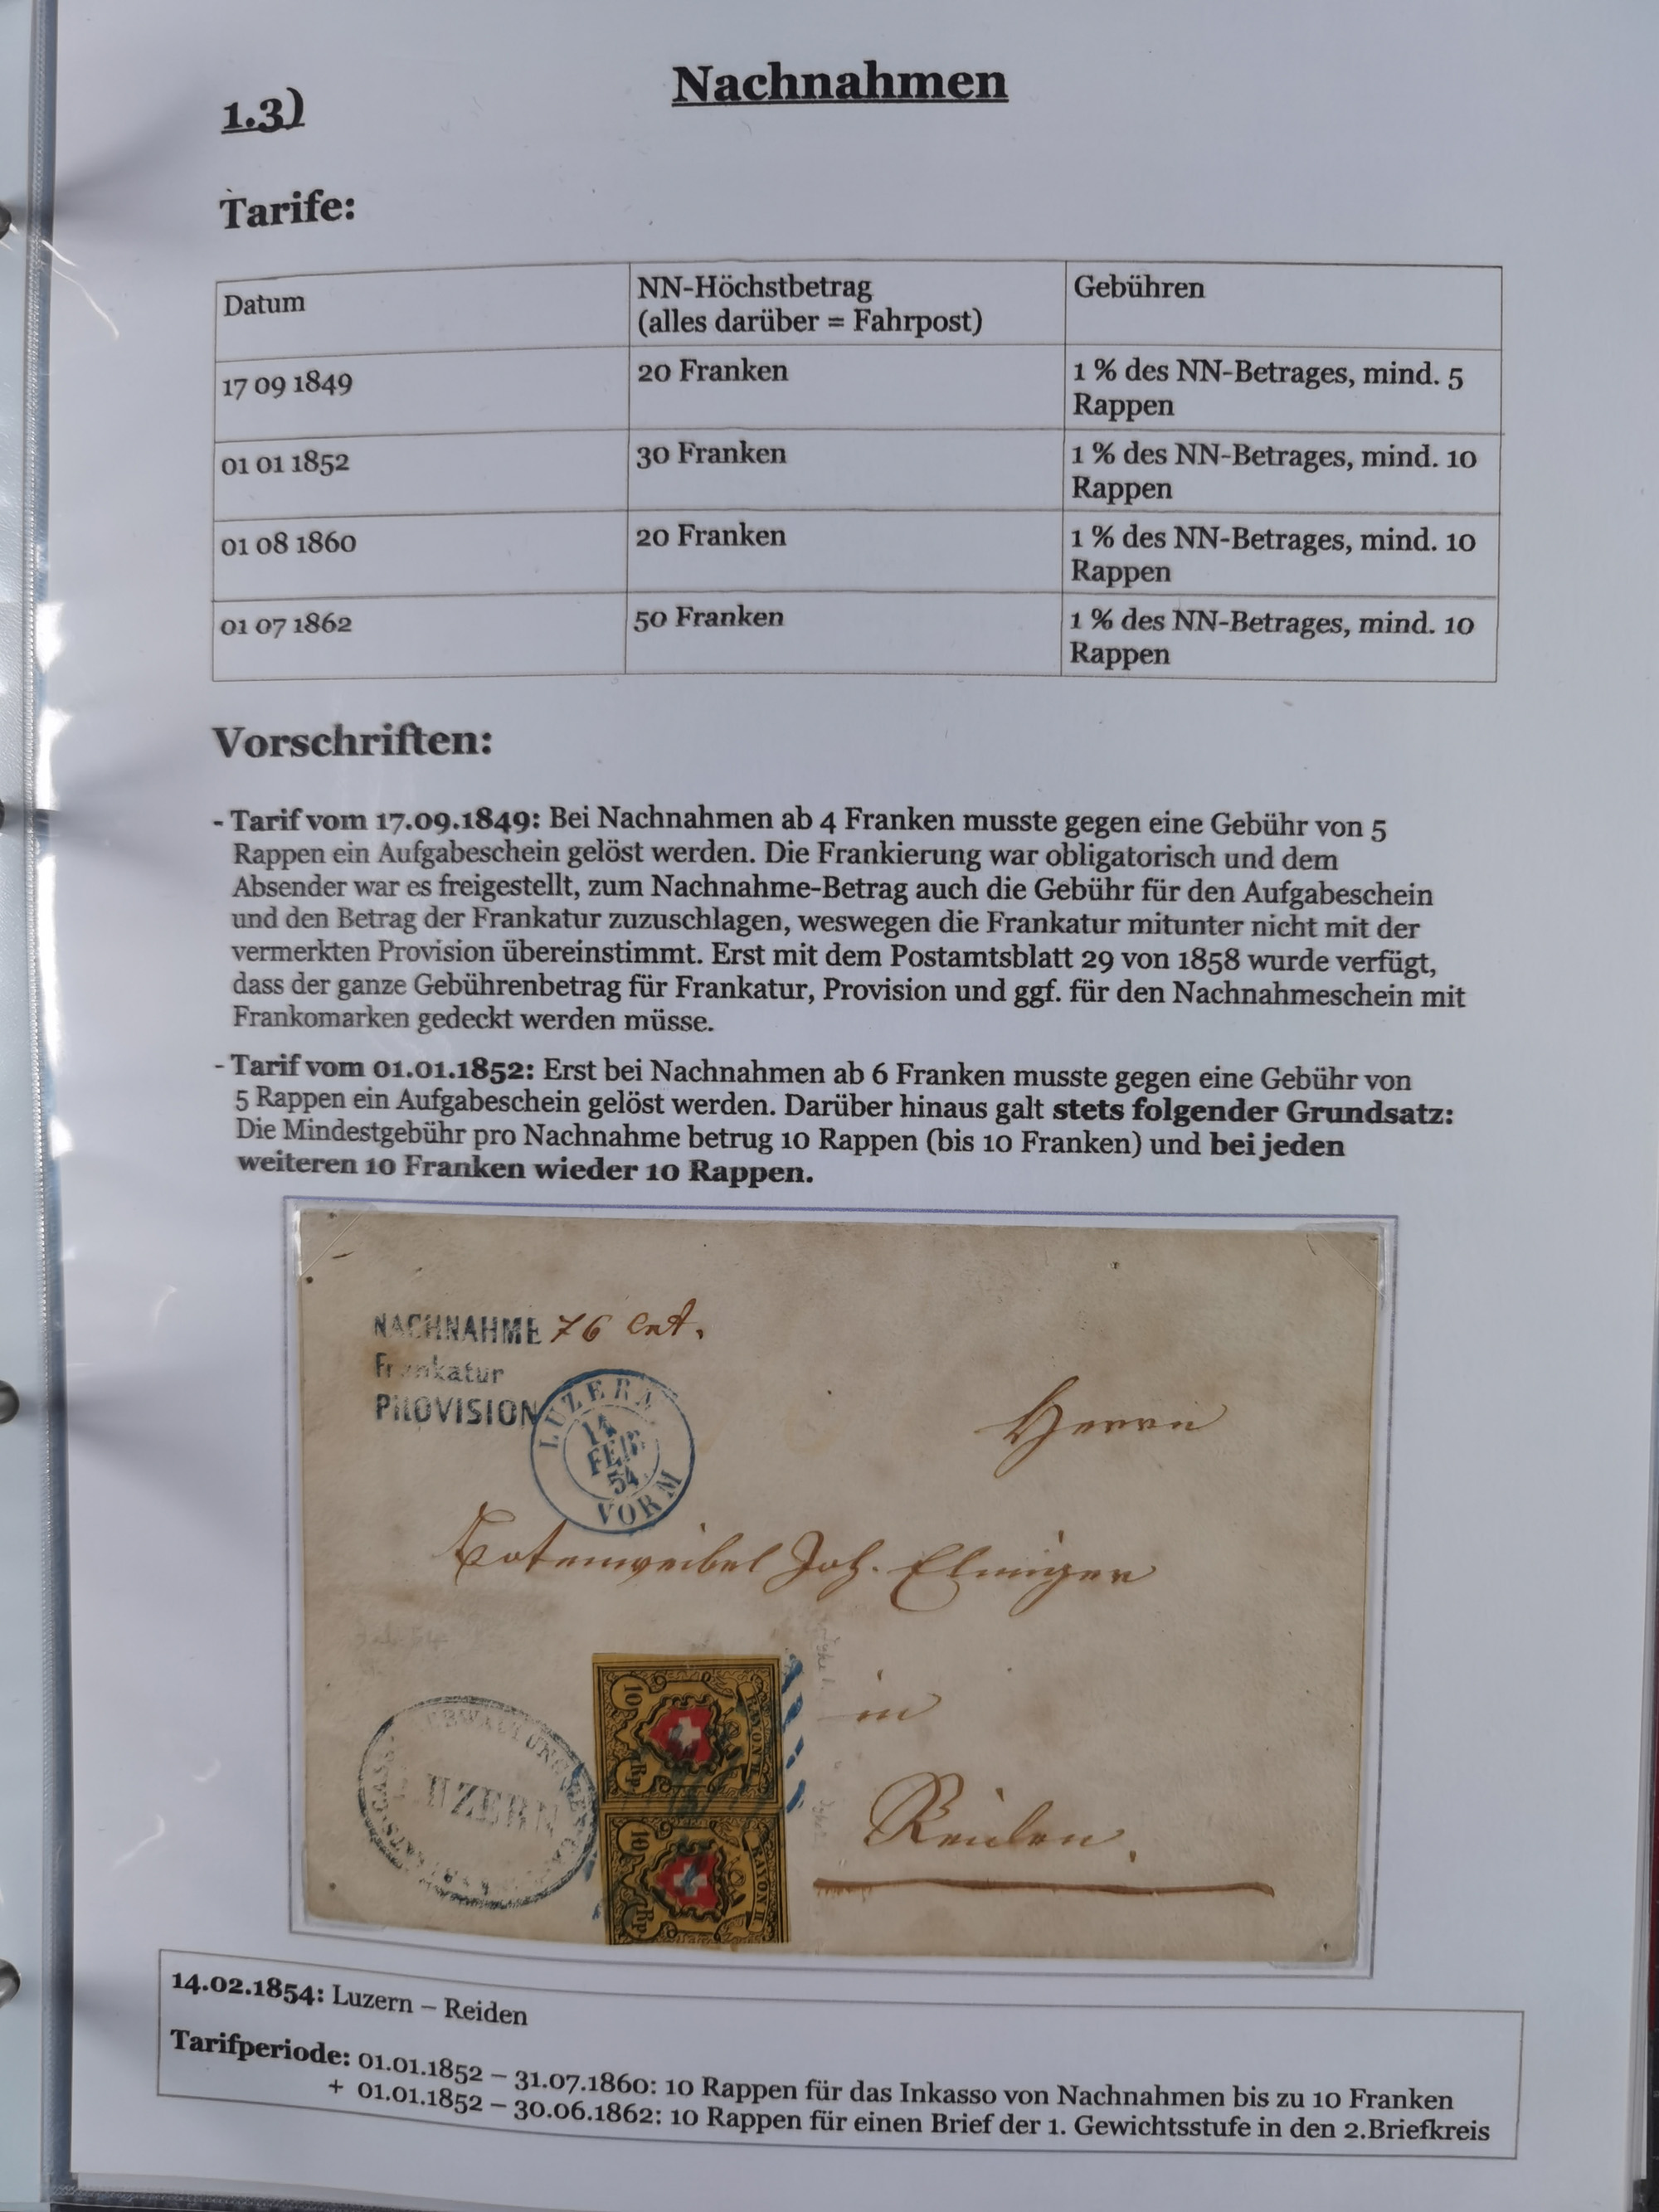 Nachnahmen
1.3)
Tarife:
Datum
NN-Höchstbetrag
(alles darüber = Fahrpost)
Gebühren
17 09 1849
20 Franken
1 % des NN-Betrages, mind. 5
Rappen
01 01 1852
30 Franken
1 % des NN-Betrages, mind. 10
Rappen
01 08 1860
20 Franken
1 % des NN-Betrages, mind. 10
Rappen
01 07 1862
50 Franken
1 % des NN-Betrages, mind. 10
Rappen
Vorschriften:
- Tarif vom 17.09.1849: Bei Nachnahmen ab 4 Franken musste gegen eine Gebühr von 5
Rappen ein Aufgabeschein gelöst werden. Die Frankierung war obligatorisch und dem
Absender war es freigestellt, zum Nachnahme-Betrag auch die Gebühr für den Aufgabeschein
und den Betrag der Frankatur zuzuschlagen, weswegen die Frankatur mitunter nicht mit der
vermerkten Provision übereinstimmt. Erst mit dem Postamtsblatt 29 von 1858 wurde verfügt,
dass der ganze Gebührenbetrag für Frankatur, Provision und ggf. für den Nachnahmeschein mit
Frankomarken gedeckt werden müsse.
- Tarif vom 01.01.1852: Erst bei Nachnahmen ab 6 Franken musste gegen eine Gebühr von
5 Rappen ein Aufgabeschein gelöst werden. Darüber hinaus galt stets folgender Grundsatz:
Die Mindestgebühr pro Nachnahme betrug 10 Rappen (bis 10 Franken) und bei jeden
weiteren 10 Franken wieder 10 Rappen.
NACHNAHME 76 Cnt.
Frankatur
PROVISION
LUZERN
14
FEB
54
VORM
Herrn
Botenweibel Joh. Elmiger
in
Reiden.
LUZERN
10 Rp. RAYON II
10 Rp. RAYON II
14.02.1854: Luzern – Reiden
Tarifperiode: 01.01.1852 – 31.07.1860: 10 Rappen für das Inkasso von Nachnahmen bis zu 10 Franken
+ 01.01.1852 – 30.06.1862: 10 Rappen für einen Brief der 1. Gewichtsstufe in den 2.Briefkreis